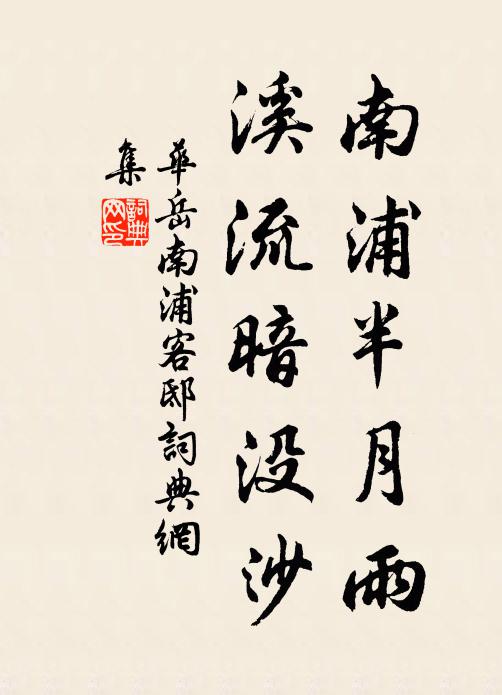 南浦半月雨
溪流暗没沙
華岳南浦客邸詞典網
集
詞典网印